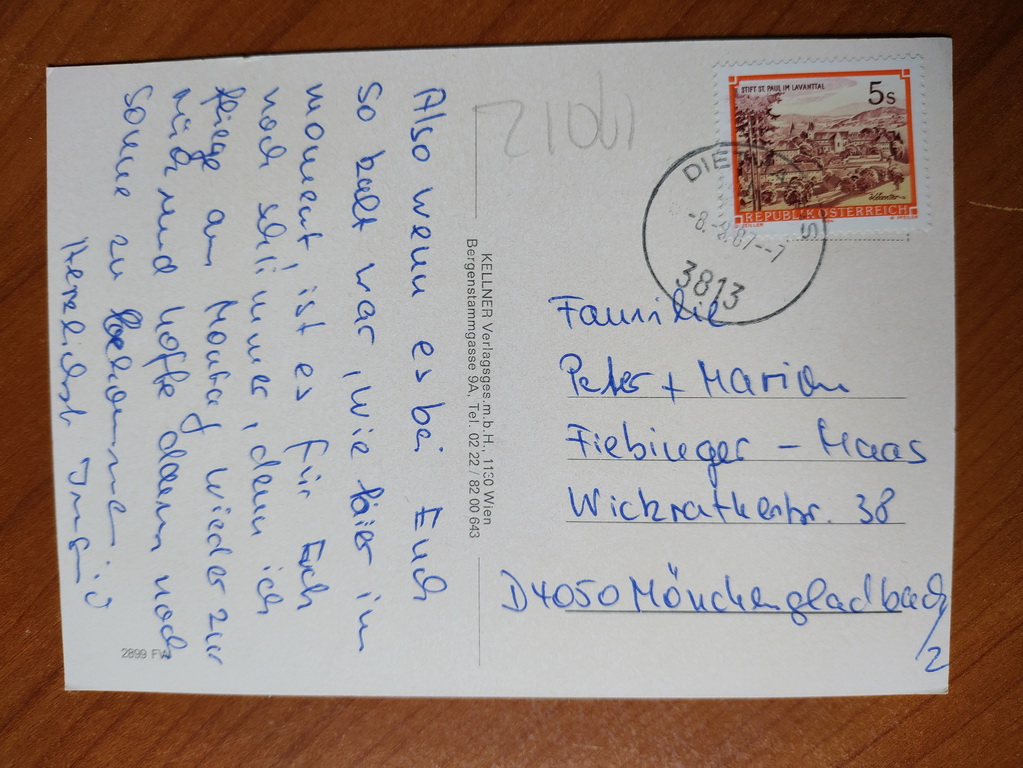 Also wenn es bei Euch
so kalt war, wie hier im
Moment ist es für Euch
noch schlimmer, denn ich
fliege am Montag wieder zur
und hoffe dann noch
Sonne zu bekommen.
Herzlichst Ingrid
KELLNER Verlagsges.m.b.H., 1130 Wien
Bergenstammgasse 9A, Tel. 02 22 / 82 00 643
2899
STIFT ST. PAUL IM LAVANTTAL
5s
REPUBLIK ÖSTERREICH
DIE
S
-8.-8.87--7
3813
Familie
Peter + Marion
Fiebinger - Maas
Wickratherstr. 38
D 4050 Mönchengladbach
/2